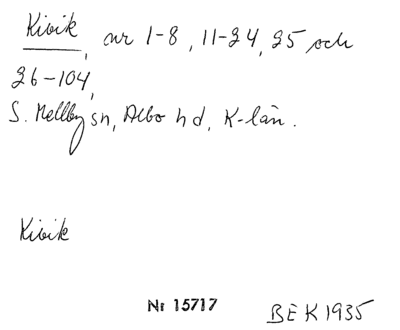 Kivik, nr 1-8, 11-24, 25 och
26-104,
S. Mellby sn, Albo hd, K-län.
Kivik
Nr 15717
BEK 1935